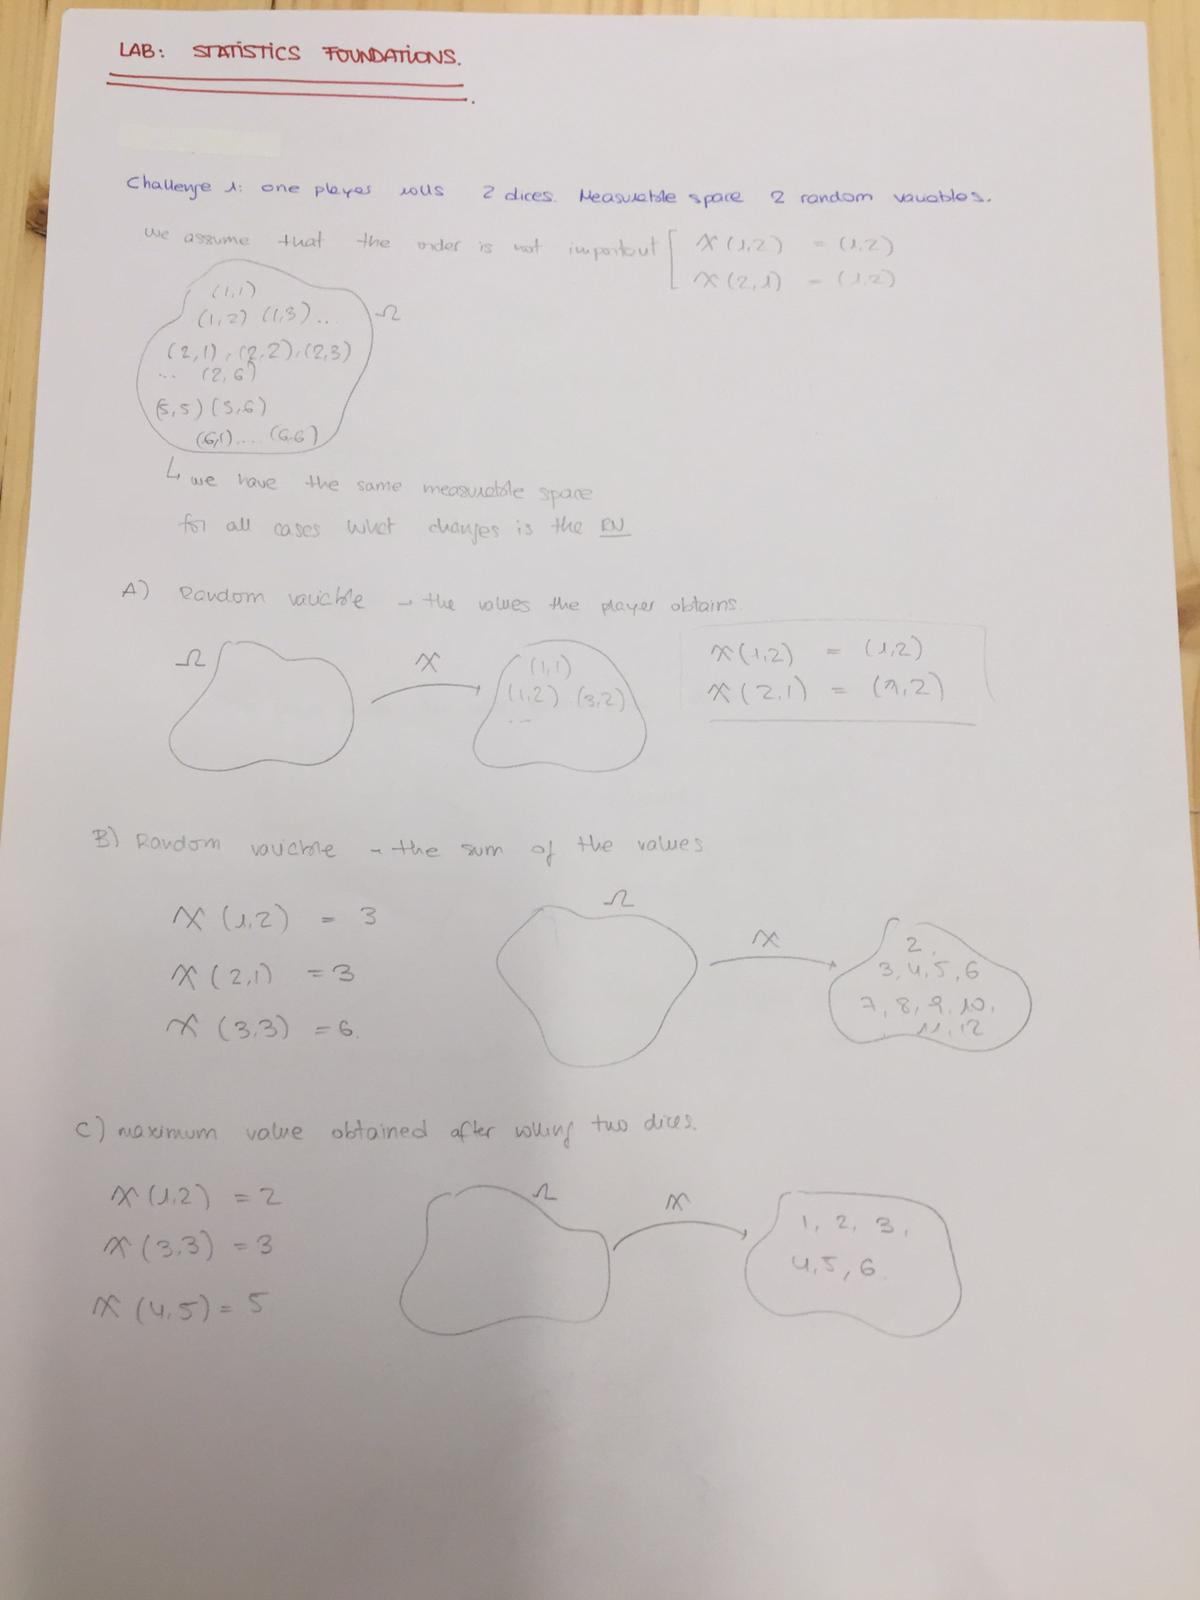 LAB: STATISTICS FOUNDATIONS.
Challenge 1: one player rolls 2 dices. Measurable space 2 random variables.
we assume that the order is not important [ X(1,2) = (1,2)
X(2,1) = (1,2)
(1,1)
(1,2) (1,3)... Ω
(2,1), (2,2), (2,3)
... (2,6)
(5,5) (5,6)
(6,1).... (6,6)
↳ we have the same measurable space
for all cases what changes is the RV
A) Random variable → the values the player obtains.
Ω X (1,1) X(1,2) = (1,2)
(1,2) (3,2) X(2,1) = (1,2)
...
B) Random variable → the sum of the values
Ω
X(1,2) = 3 X 2,
3,4,5,6
X(2,1) = 3
7, 8, 9, 10,
X(3,3) = 6. 11, 12
C) maximum value obtained after rolling two dices.
X(1,2) = 2 Ω X
1, 2, 3,
X(3,3) = 3
4,5,6.
X(4,5) = 5